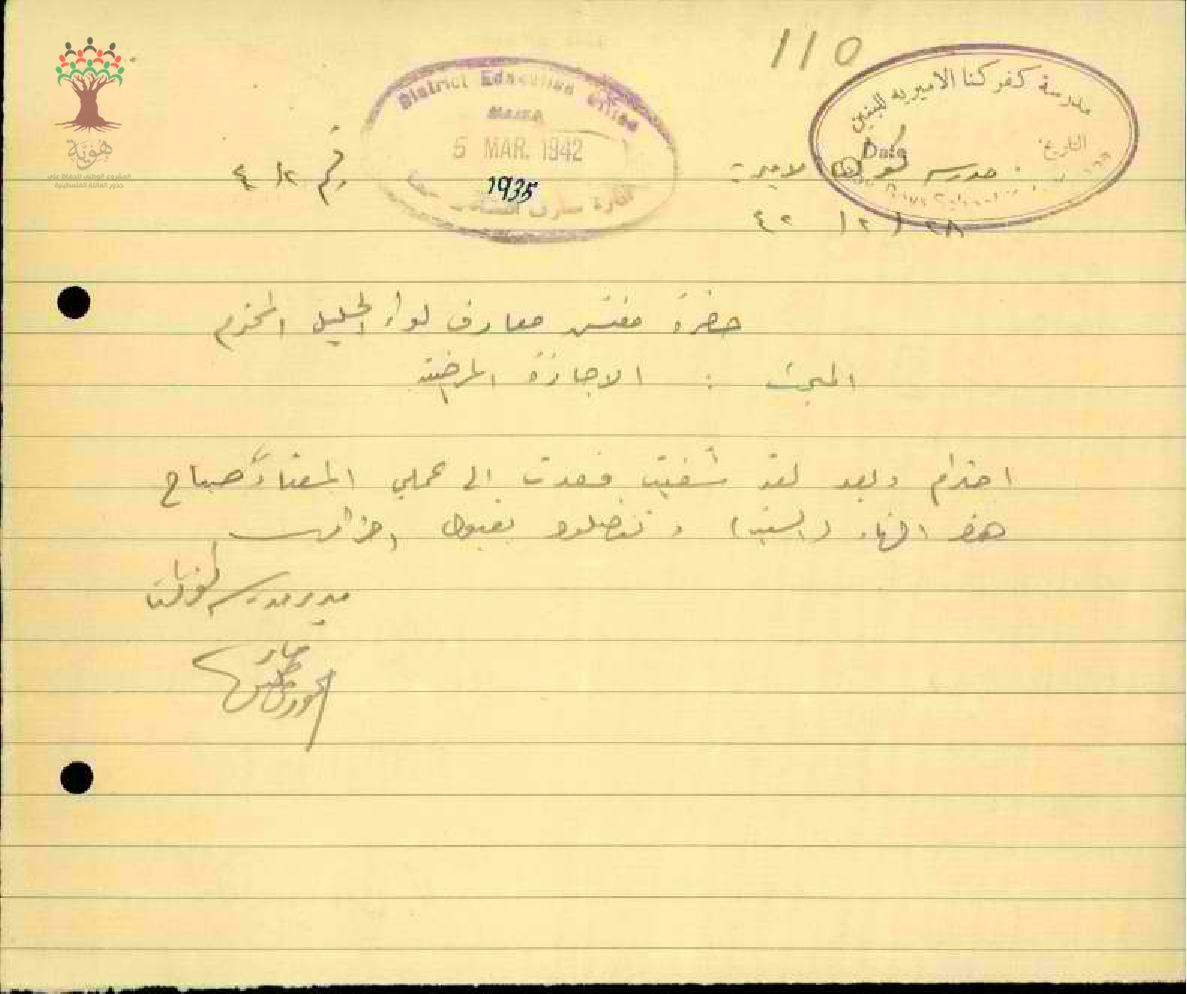 110
مدرسة كفركنا الاميريه للبنين
التاريخ:
Date
District Education Office
HAIFA
5 MAR. 1942
1935
هوية
المشروع الوطني للحفاظ على
جذور العائلة الفلسطينية
مدرسة كفركنا الاميرية
رقم ٤/٢
٢٨/٢/٤٢
حضرة مفتش معارف لواء الجليل المحترم
المبحث : الاجازة المرضية
احترام وبعد لقد شفيت فعدت الى عملي المعتاد صباح
هذا النهار (السبت) وتفضلوا بقبول احترامي
مدير مدرسة كفركنا